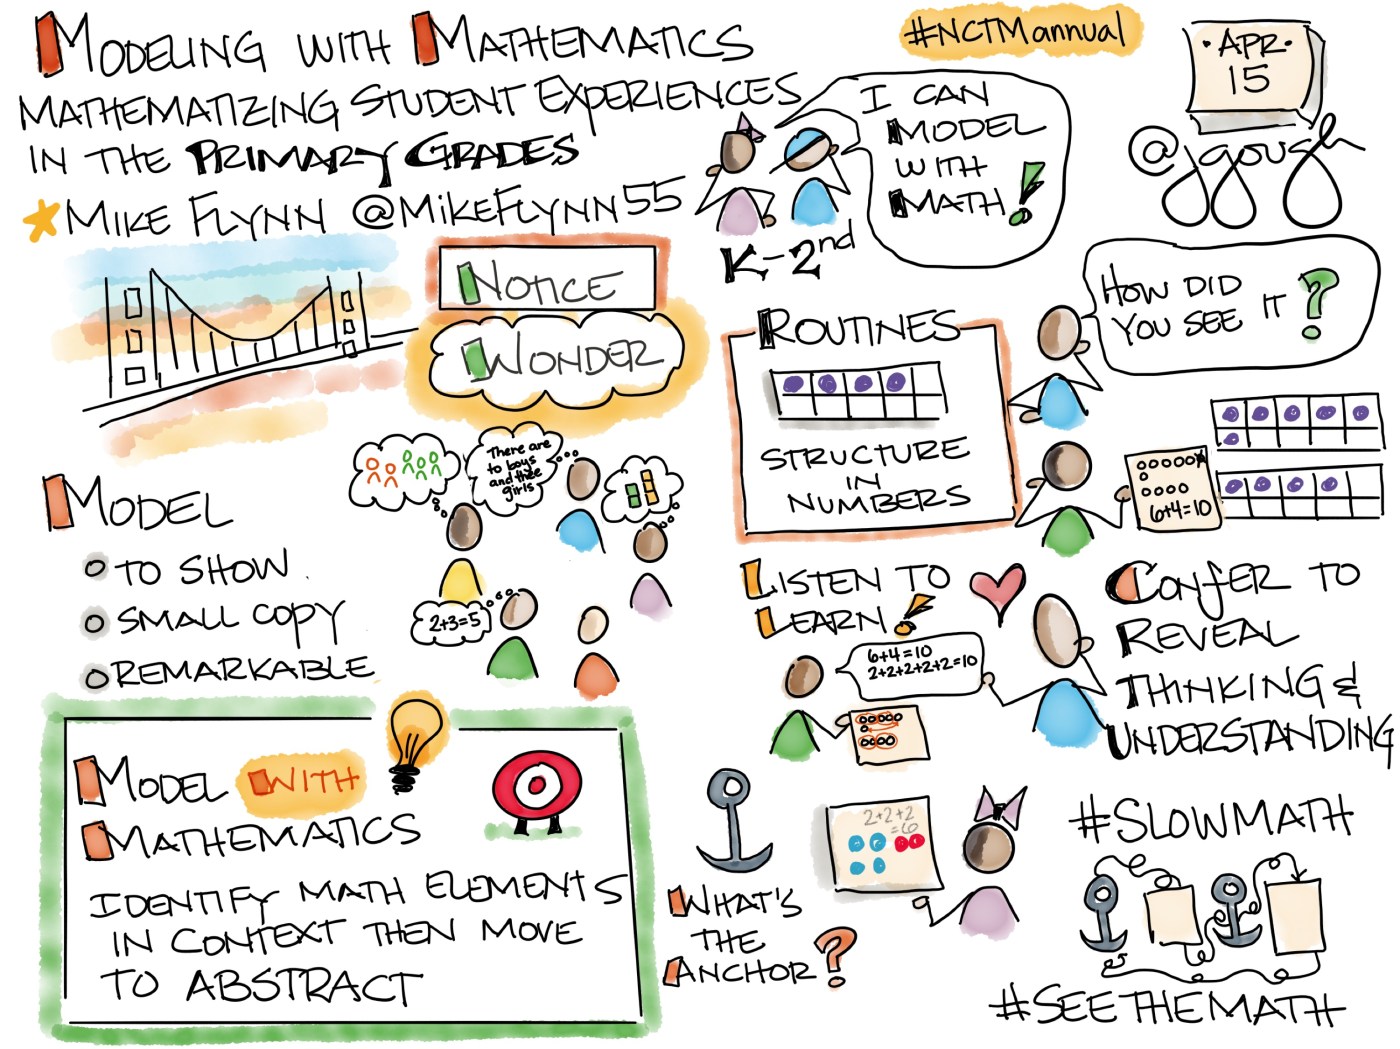 MODELING WITH MATHEMATICS
MATHEMATIZING STUDENT EXPERIENCES
IN THE PRIMARY GRADES
MIKE FLYNN @MIKEFLYNN55
#NCTMannual
APR
15
@jgough
I CAN
MODEL
WITH
MATH!
K-2nd
NOTICE
WONDER
HOW DID
YOU SEE IT?
ROUTINES
STRUCTURE
IN
NUMBERS
6+4=10
There are
to boys
and thee
girls
2+3=5
MODEL
TO SHOW
SMALL COPY
REMARKABLE
LISTEN TO
LEARN!
6+4=10
2+2+2+2+2=10
CONFER TO
REVEAL
THINKING &
UNDERSTANDING
MODEL WITH
MATHEMATICS
IDENTIFY MATH ELEMENTS
IN CONTEXT THEN MOVE
TO ABSTRACT
2+2+2
=6
WHAT'S
THE
ANCHOR?
#SLOWMATH
#SEETHEMATH